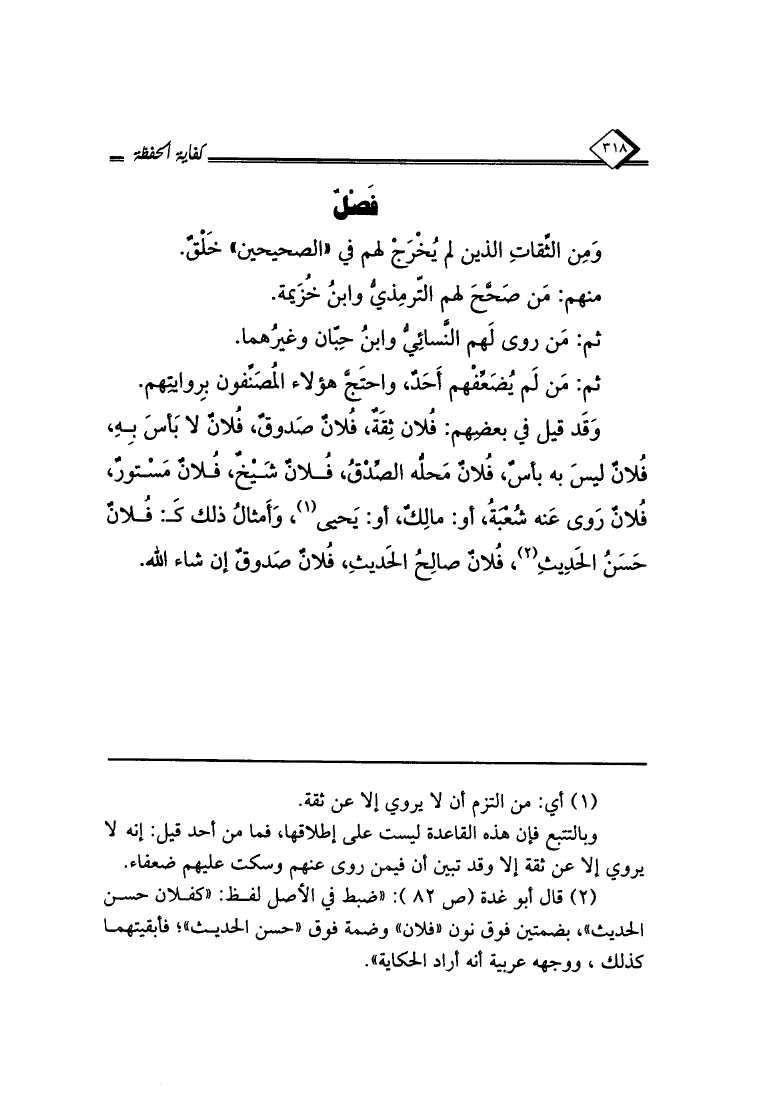 ٣١٨
كفاية الحفظة
فَصْلٌ
وَمِن الثِّقاتِ الذين لم يُخْرَجْ لهم في «الصحيحين» خَلْقٌ.
منهم: مَن صَحَّحَ لهم التِّرمِذيُّ وابنُ خُزَيمة.
ثم: مَن روى لَهم النَّسائِيُّ وابنُ حِبّان وغيرُهما.
ثم: مَن لَم يُضَعِّفْهم أَحَدٌ، واحتَجَّ هؤلاء المُصَنِّفون بِروايتِهم.
وَقَد قيل في بعضِهم: فُلان ثِقَةٌ، فُلانٌ صَدوقٌ، فُلانٌ لا بَأسَ بِهِ،
فُلانٌ ليسَ به بأسٌ، فُلانٌ مَحلُّه الصِّدْقُ، فُلانٌ شَيْخٌ، فُلانٌ مَسْتورٌ،
فُلانٌ رَوى عَنه شُعْبَةُ، أو: مالِكٌ، أو: يَحيى(١)، وَأمثالُ ذلك كَـ: فُلانٌ
حَسَنُ الحَدِيثِ(٢)، فُلانٌ صالِحُ الحَديثِ، فُلانٌ صَدوقٌ إن شاء الله.
(١) أي: من التزم أن لا يروي إلا عن ثقة.
وبالتتبع فإن هذه القاعدة ليست على إطلاقها، فما من أحد قيل: إنه لا
يروي إلا عن ثقة إلا وقد تبين أن فيمن روى عنهم وسكت عليهم ضعفاء.
(٢) قال أبو غدة (ص ٨٢ ): «ضبط في الأصل لفظ: «كفلان حسن
الحديث»، بضمتين فوق نون «فلان» وضمة فوق «حسن الحديث»؛ فأبقيتهما
كذلك ، ووجهه عربية أنه أراد الحكاية».